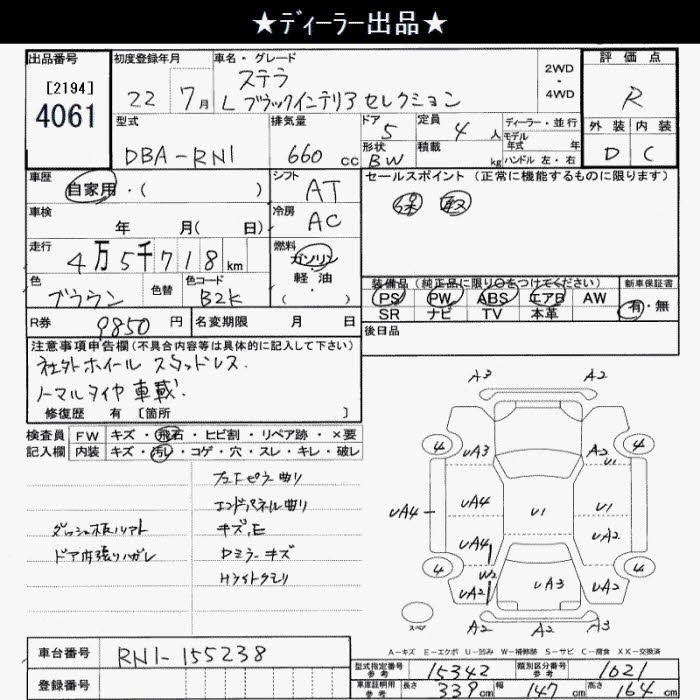 ★ディーラー出品★
出品番号
[2194]
4061
初度登録年月
22 7月
車名・グレード
ステラ
L ブラックインテリア セレクション
2WD
・
4WD
評価点
R
外装 内装
D C
型式
DBA-RN1
排気量
660 cc
ドア
5
形状
BW
定員
4 人
積載
kg
ディーラー・並行
モデル
年式 年
ハンドル 左・右
車歴
自家用・( )
シフト
AT
セールスポイント (正常に機能するものに限ります)
保 軽
車検
年 月( 日)
冷房
AC
走行
4万5千718 km
燃料
ガソリン
軽・油
( )
色
ブラウン
色替
色コード
B2K
装備品 (純正品に限り○をつけてください)
PS PW ABS エアB AW
SR ナビ TV 本革
新車保証書
有・無
R券
9850 円
名変期限 月 日
後日品
注意事項申告欄(不具合内容等は具体的に記入して下さい)
社外ホイール スタッドレス.
ノーマルタイヤ 車載.
修復歴 有 [箇所 ]
検査員
記入欄
FW キズ・飛石・ヒビ割・リペア跡・×要
内装 キズ・汚レ・コゲ・穴・スレ・キレ・破レ
エンドパネル曲リ
ドア内張リハガレ
キズ,E
Dミラーキズ
Hライトクモリ
A3 A2
4 4
UA3 A2
U1
UA4 UA4 U1 U1
UA4 UA2
4 4
W2
UA2 UA3 UA2
スペア
A2 A2 A3
A-キズ E-エクボ U-凹み W-補修跡 S-サビ C-腐食 XX-交換済
車台番号
RN1-155238
登録番号
型式指定番号
参考
15342
類別区分番号
参考
1021
車庫証明用
参考
長さ 339cm 幅 147cm 高さ 164cm